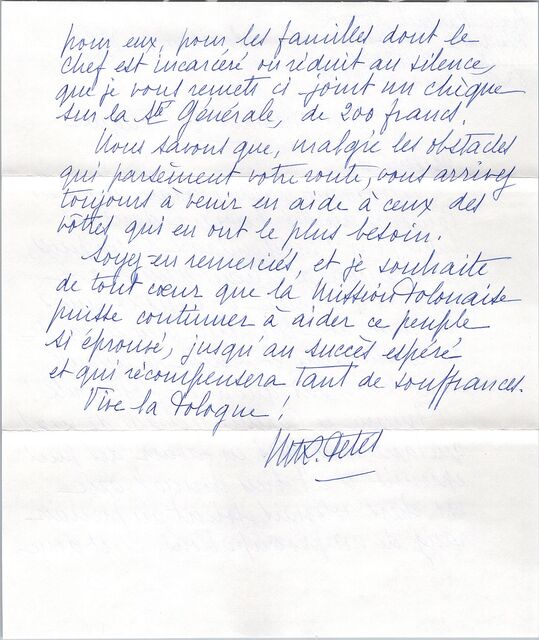 pour eux, pour les familles dont le
chef est incarcéré ou réduit au silence,
que je vous remets ci-joint un chèque
sur la Sté Générale, de 200 francs.
Nous savons que, malgré les obstacles
qui parsèment votre route, vous arrivez
toujours à venir en aide à ceux des
vôtres qui en ont le plus besoin.
Soyez-en remerciés, et je souhaite
de tout cœur que la Mission Polonaise
puisse continuer à aider ce peuple
si éprouvé, jusqu'au succès espéré
et qui récompensera tant de souffrances.
Vive la Pologne !